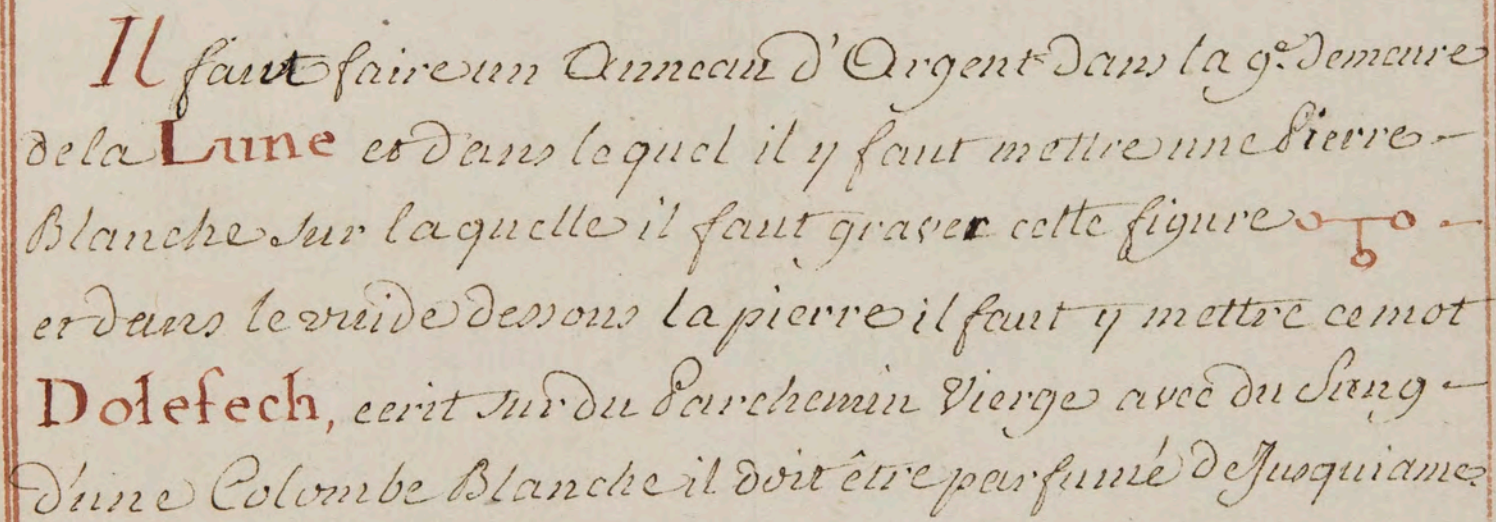 Il faut faire un Anneau d'Argent dans la 9.e Demeure
de la Lune et dans lequel il y faut mettre une Pierre -
Blanche sur laquelle il faut graver cette figure -
et dans le vuide dessous la pierre il faut y mettre ce mot
Dolefech, ecrit sur du Parchemin Vierge avec du Sang -
d'une Colombe Blanche il doit être parfumé de Jusquiame